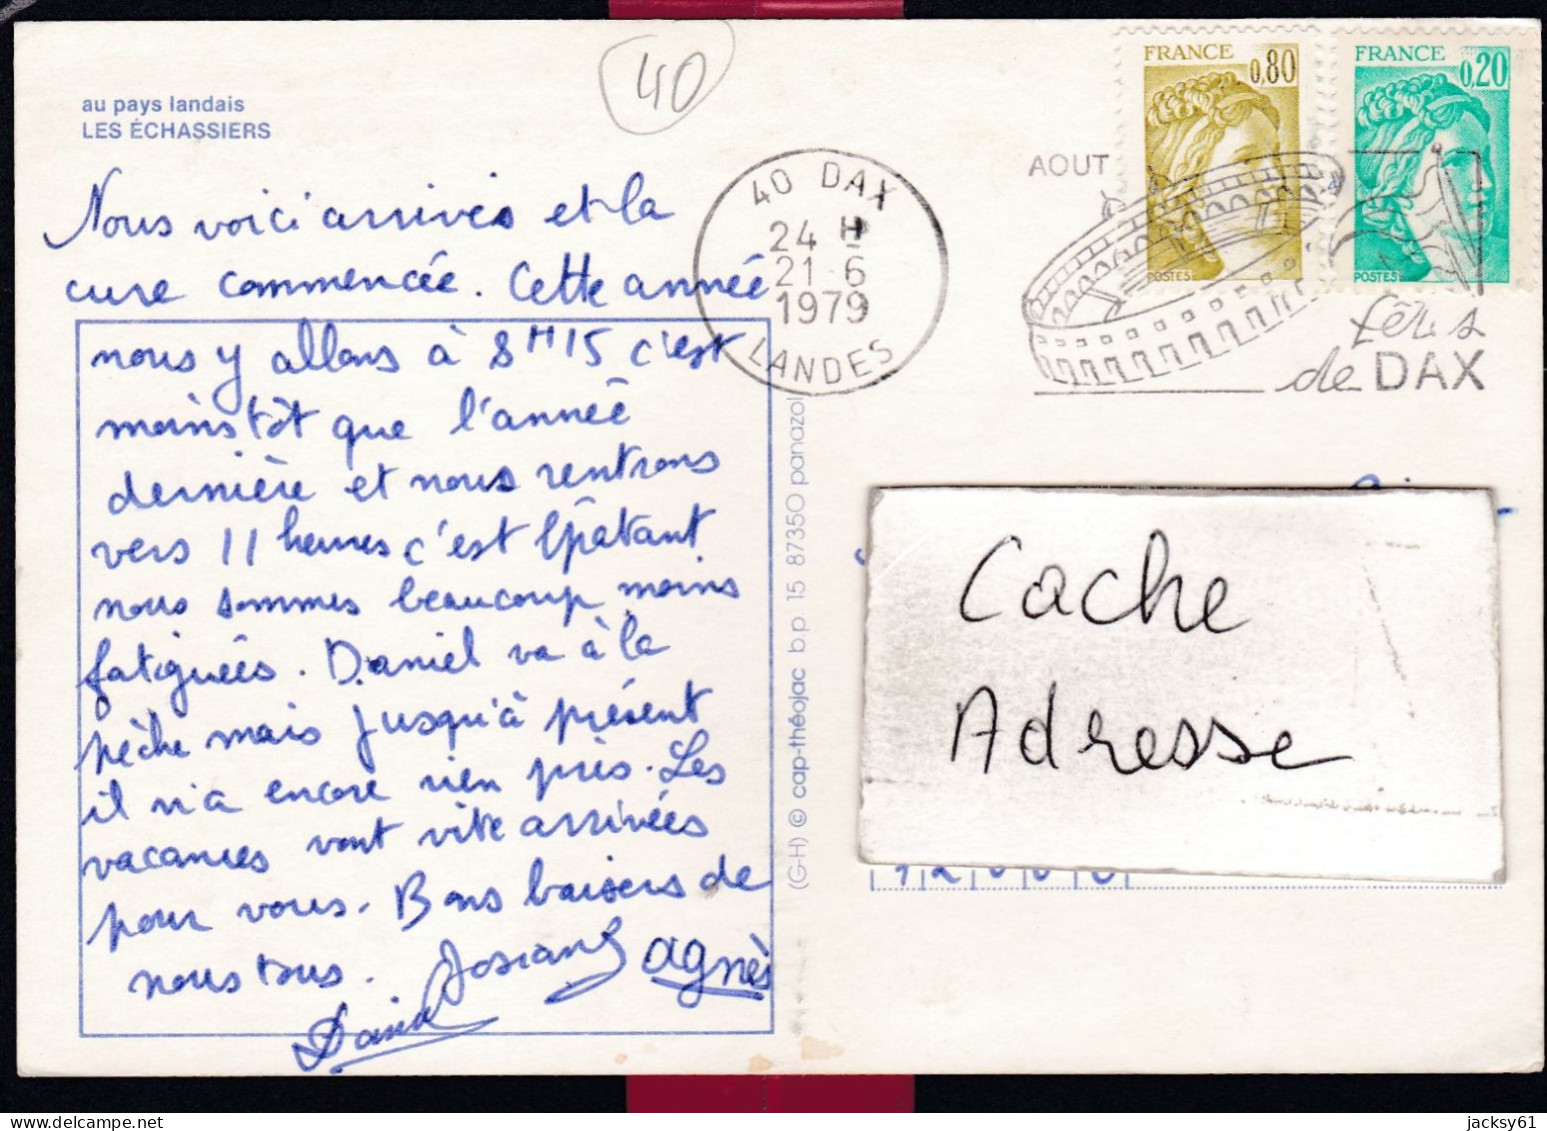 au pays landais
LES ÉCHASSIERS
40
Nous voici arrivés et la
cure commencée. Cette année
nous y allons à 8H15 c'est
moins tôt que l'année
dernière et nous rentrons
vers 11 heures c'est épatant
nous sommes beaucoup moins
fatiguées. Daniel va à la
pêche mais jusqu'à présent
il n'a encore rien pris. Les
vacances vont vite arrivées
pour vous. Bons baisers de
nous tous. Josiane agnès
Daniel
40 DAX
24 H
21-6
1979
LANDES
AOUT
fêtes
de DAX
FRANCE
0,80
POSTES
FRANCE
0,20
POSTES
(G-H) © cap-théojac b p 15 87350 panazol
Cache
Adresse
jacksy61